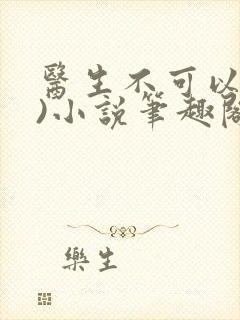 醫生不可以
)小說筆趣閣
樂生